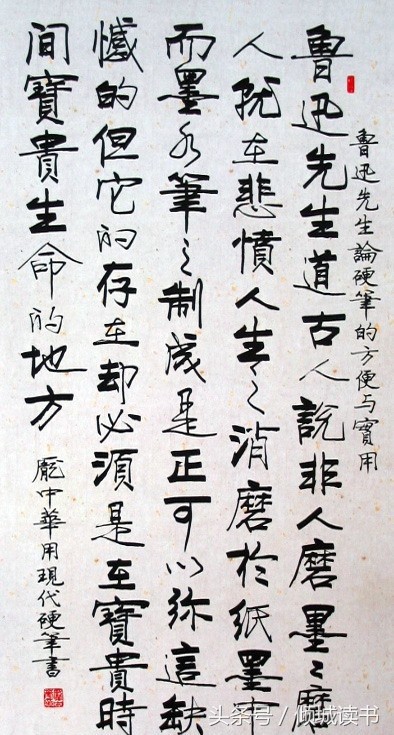 魯迅先生論硬筆的方便与實用
魯迅先生道古人說非人磨墨〻磨
人就在悲憤人生之消磨於紙墨中
而墨水筆之制成是正可以弥這缺
憾的但它的存在却必須是在寶貴時
間寶貴生命的地方
龐中華用現代硬筆書
头条号/倾城读书